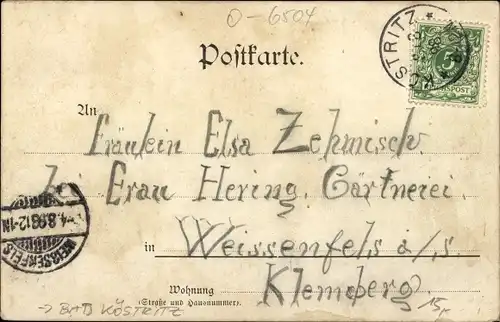 O-6504
Postkarte.
KÖSTRITZ
5
An
Fräulein Elsa Zehmisch.
bei Frau Hering, Gärtnerei
4.8.98 12-1N
WEISSENFELS
in Weissenfels a/S.
Wohnung Klemmberg.
(Straße und Hausnummer)
→ BAD KÖSTRITZ